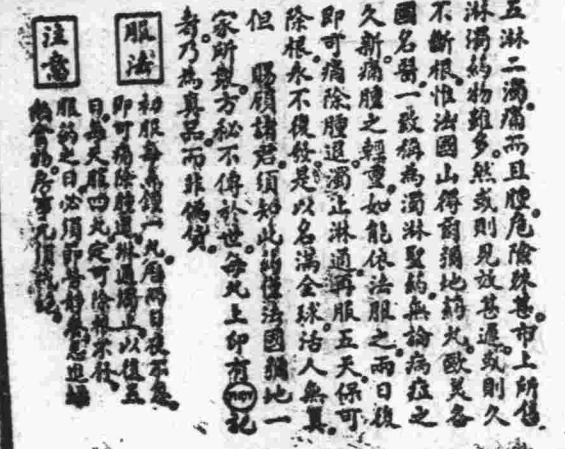 五淋二濁痛而且腫危險殊甚市上所售
淋濁药物雖多然或則見效甚遲或則久
不斷根惟法國山得爾彌地药丸歐美各
國名醫一致稱為濁淋聖药無論病症之
久新痛腫之輕重如能依法服之兩日後
即可痛除腫退濁止淋通再服五天保可
除根永不復發是以名滿全球活人無算
但 賜顧諸君須知此药僅法國彌地一
家所製方秘不傳於世每丸上印有MIDY記
者乃為真品而非偽貨
服法
初服每點鐘一丸 兩日夜不息
即可痛除腫退淋通濁止以後五
日每天服四丸定可除根不發
注意
服药之日必須 靜 忌進
房事尤須戒